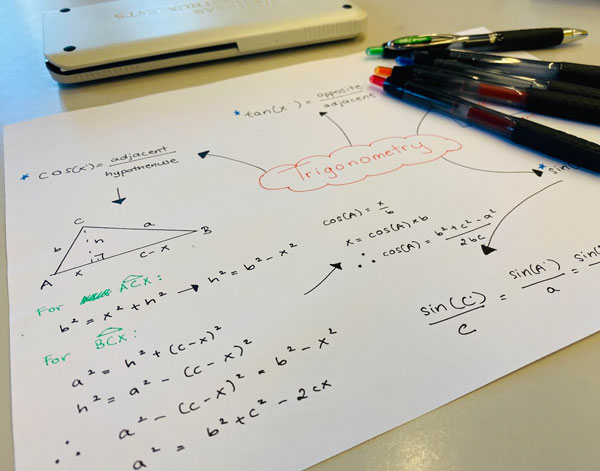 INSTRUMENTS
*tan(x) = opposite/adjacent
*cos(x) = adjacent/hypothenuse
Trigonometry
*sin
C
b
a
h
A
x
c-x
B
For ACX:
b² = x² + h² → h² = b² - x²
For BCX:
a² = h² + (c-x)²
h² = a² - (c-x)²
∴ a² - (c-x)² = b² - x²
a² = b² + c² - 2cx
cos(A) = x/b
x = cos(A) * b
∴ cos(A) = b² + c² - a²/2bc
sin(C)/c = sin(A)/a = sin